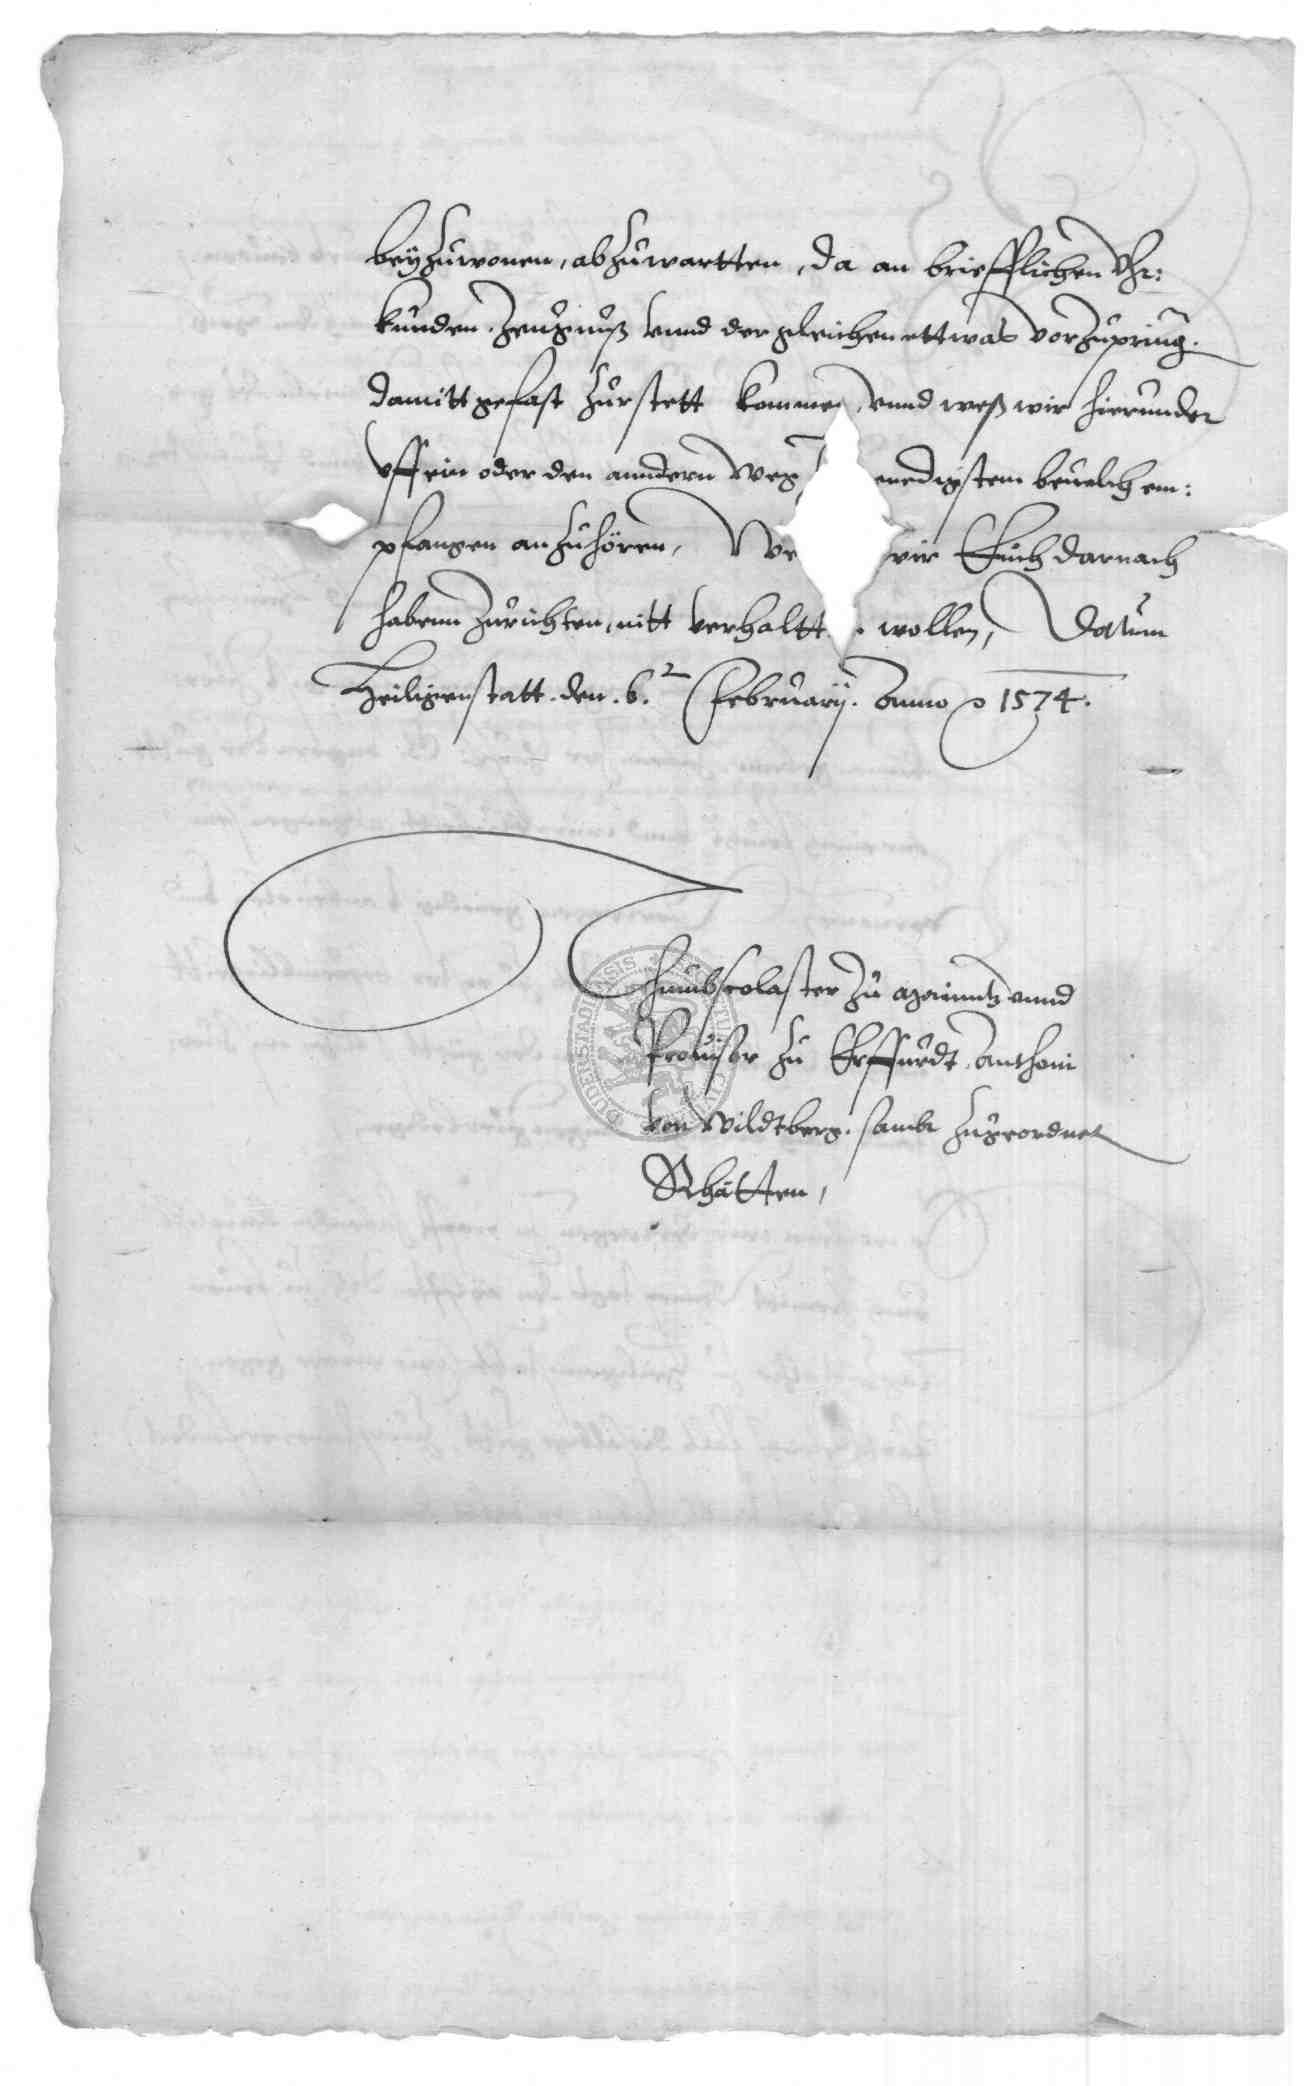 beyzuwonen, abzuwartten, da an briefflichen Vhr:
kunden, Zeugnuß vnnd der gleichen ettwas vorzupring.
damitt gefast zur stett komme vnnd weß wir hierunder
vff ein oder den anndern weg enedigstem beuelch em:
pfangen anzuhören, wir Euch darnach
habenn zurichten, nitt verhaltt wollen, Datum
Heiligenstatt. den. 6. February. Anno 1574.
Thumbscolaster zu Maintz vnnd
Prouisor zu Erffurdt. Anthoni
von Wildtberg. sambt zugeordnet
Rhätten,
DUDERSTADIENSIS